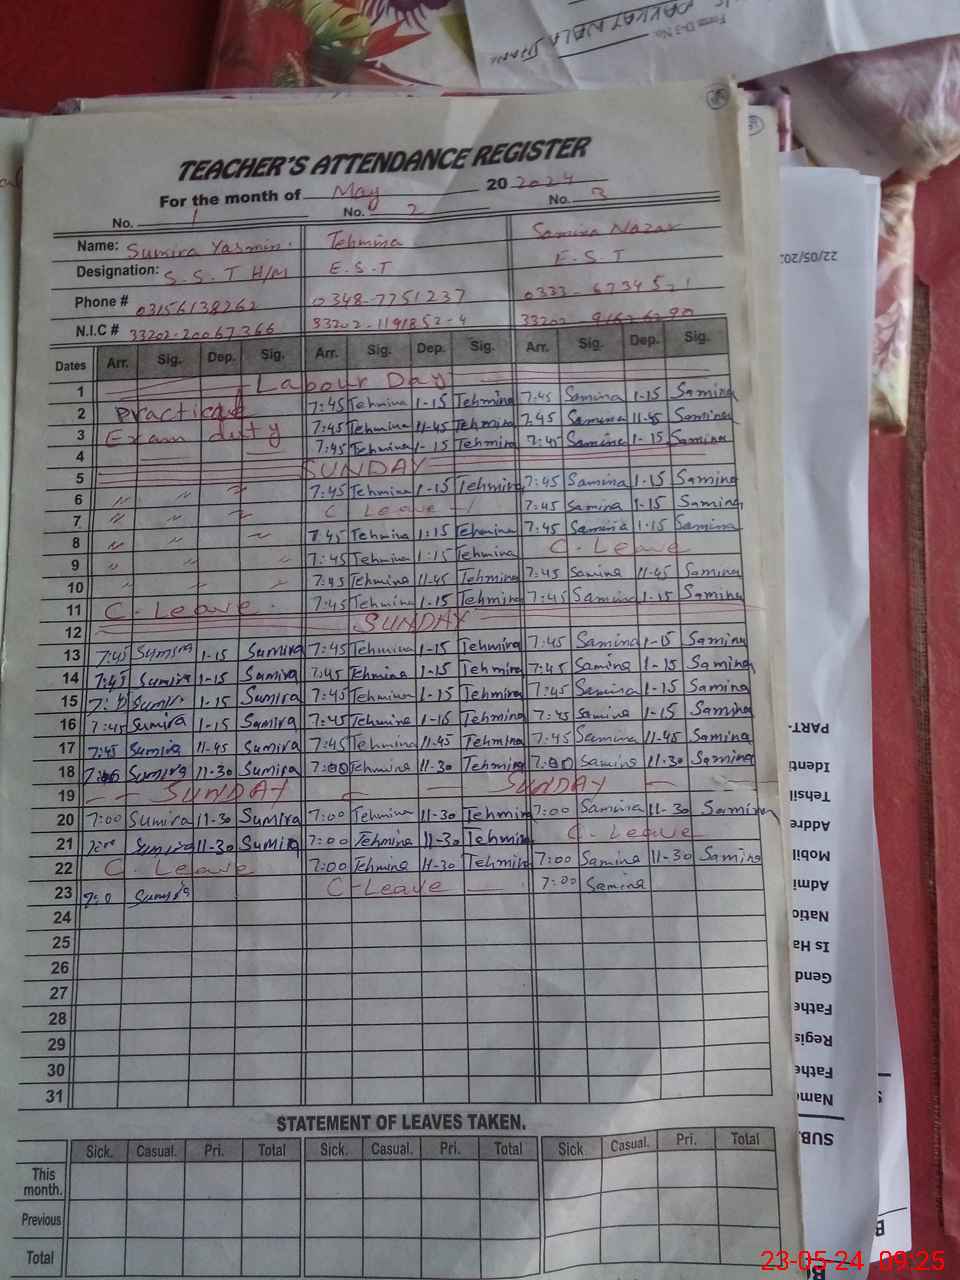 TEACHER'S ATTENDANCE REGISTER
For the month of May 20 2024
No. 1 No. 2 No. 3
Name: Sumira Yasmin. Tehmina Samina Nazar
Designation: S.S.T H/M E.S.T E.S.T
Phone # 03156138262 0348-7751237 0333-
N.I.C # 33202-20067366 33202-1191852-4 33202
Dates Arr. Sig. Dep. Sig. Arr. Sig. Dep. Sig. Arr. Sig. Dep. Sig.
1 Labour Day
2 Practical 7:45 Tehmina 1-15 Tehmina 7:45 Samina 1-15 Samina
3 Exam duty 7:45 Tehmina 11-45 Tehmina 7:45 Samina 11-45 Samina
4 7:45 Tehmina 1-15 Tehmina 7:45 Samina 1-15 Samina
5 SUNDAY
6 " " " 7:45 Tehmina 1-15 Tehmina 7:45 Samina 1-15 Samina
7 " " " C Leave 7:45 Samina 1-15 Samina
8 " " " 7:45 Tehmina 1:15 Tehmina 7:45 Samina 1-15 Samina
9 " " " 7:45 Tehmina 1:15 Tehmina C-Leave
10 " " " 7:45 Tehmina 11-45 Tehmina 7:45 Samina 11-45 Samina
11 C-Leave. 7:45 Tehmina 1-15 Tehmina 7:45 Samina 1-15 Samina
12 SUNDAY
13 7:45 Sumira 1-15 Sumira 7:45 Tehmina 1-15 Tehmina 7:45 Samina 1-15 Samina
14 7:45 Sumira 1-15 Sumira 7:45 Tehmina 1-15 Tehmina 7:45 Samina 1-15 Samina
15 Sumira 1-15 Sumira 7:45 Tehmina 1-15 Tehmina 7:45 Samina 1-15 Samina
16 7:45 Sumira 1-15 Sumira 7:45 Tehmina 1-15 Tehmina 7:45 Samina 1-15 Samina
17 7:45 Sumira 11-45 Sumira 7:45 Tehmina 11-45 Tehmina 7:45 Samina 11-45 Samina
18 Sumira 11-30 Sumira 7:00 Tehmina 11-30 Tehmina 7:00 Samina 11-30 Samina
19 SUNDAY SUNDAY
20 7:00 Sumira 11-30 Sumira 7:00 Tehmina 11-30 Tehmina 7:00 Samina 11-30 Samina
21 7:00 Sumira 11-30 Sumira 7:00 Tehmina 11-30 Tehmina C-Leave
22 C-Leave 7:00 Tehmina 11-30 Tehmina 7:00 Samina 11-30 Samina
23 Sumira C-Leave 7:00 Samina
24
25
26
27
28
29
30
31
STATEMENT OF LEAVES TAKEN.
Sick. Casual. Pri. Total Sick. Casual. Pri. Total Sick Casual. Pri. Total
This month.
Previous
Total
Form D-3 No.
22/05/202
PART-
Identi
Tehsil
Addre
Mobil
Admi
Natio
Is Ha
Gend
Fathe
Regis
Fathe
Name
SUB.
23-05-24 09:25